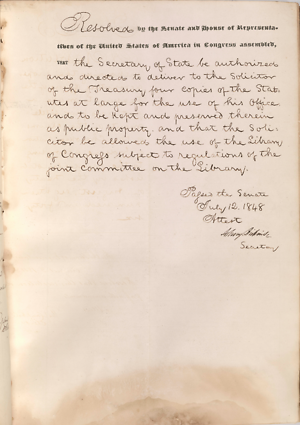 Resolved by the Senate and House of Representa-
tives of the United States of America in Congress assembled,
THAT the Secretary of State be authorized
and directed to deliver to the Solicitor
of the Treasury four copies of the Stat-
utes at large for the use of his Office
and to be kept and preserved therein
as public property and that the Soli-
citor be allowed the use of the Library
of Congress subject to regulations of the
joint Committee on the Library.
Passed the Senate
July 12, 1848
Attest
Secretary